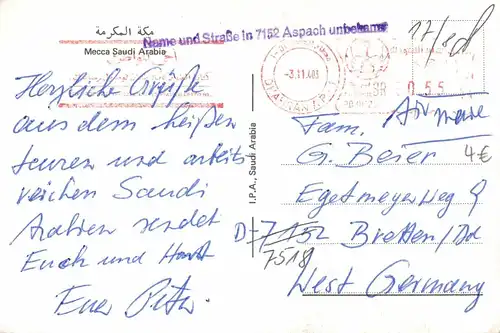 مكة المكرمة
Mecca Saudi Arabia
Name und Straße in 7152 Aspach unbekannt
-3.11.403
DHAHRAN
SR 0.55
17/
4€
Herzliche Grüße
aus dem heißen
teuren und arbeits
reichen Saudi
Arabien sendet
Euch und
Euer Peter
I.P.A., Saudi Arabia
Air
Fam.
G. Beier
Egetmeyer Weg 9
D-7152 Bretten/
7518
West Germany